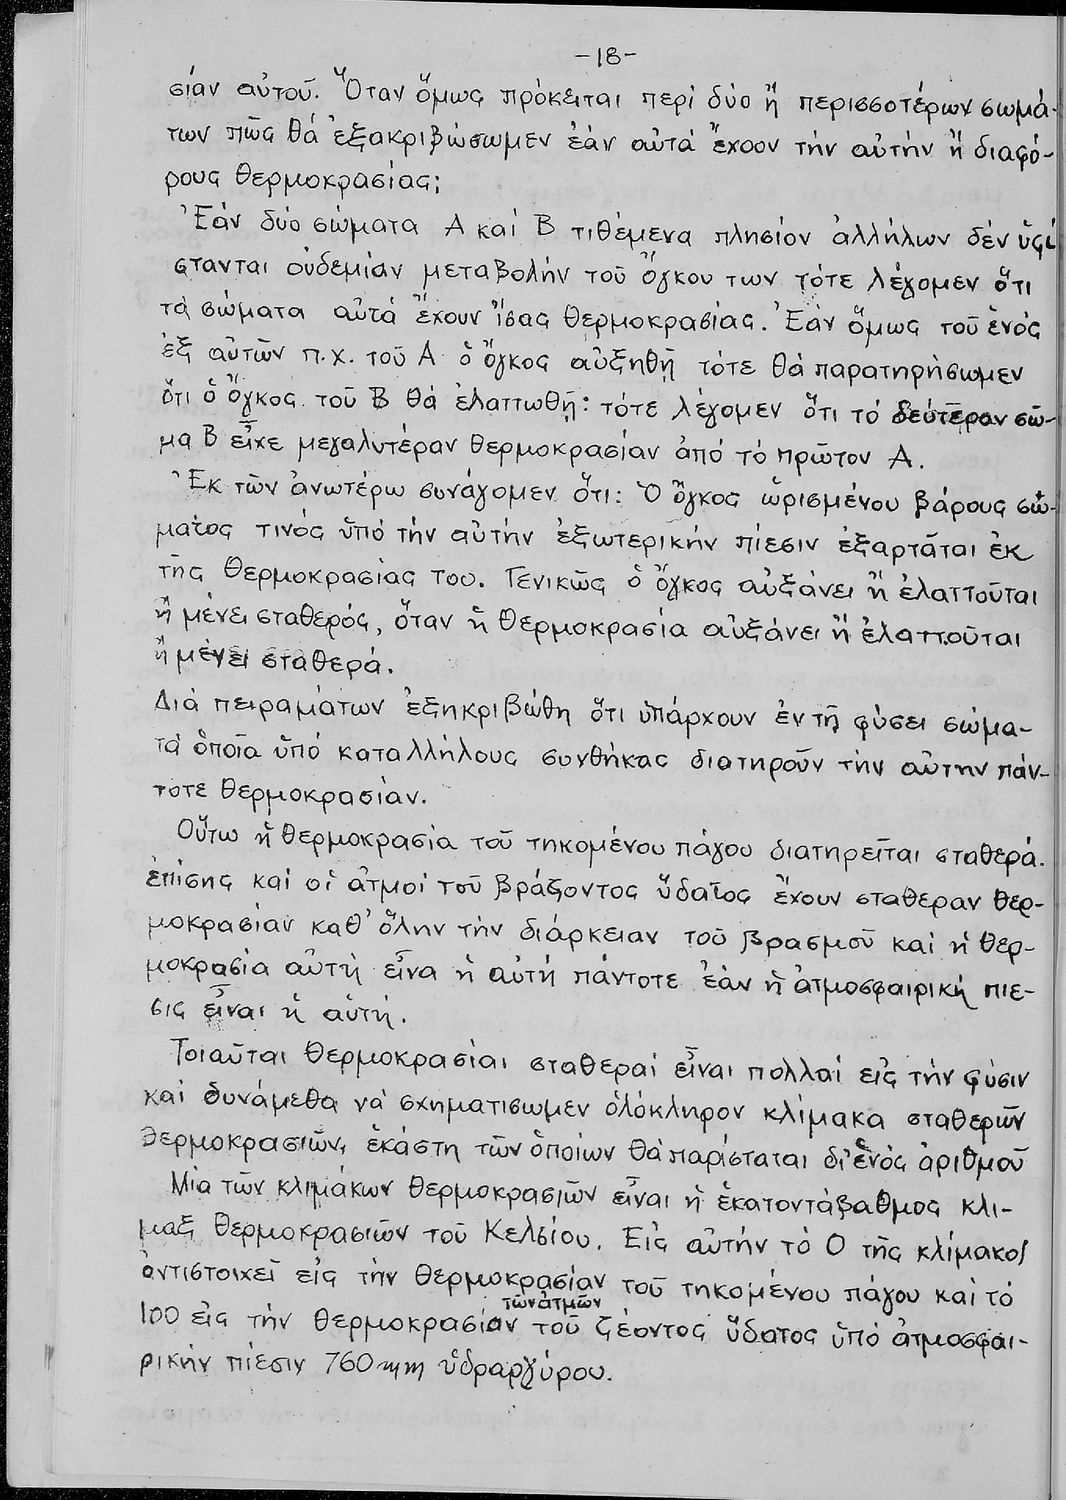 -18-
σίαν αὐτοῦ. Ὅταν ὅμως πρόκειται περί δύο ἤ περισσοτέρων σωμά-
των πῶς θά ἐξακριβώσωμεν ἐάν αὐτά ἔχουν τήν αὐτήν ἤ διαφό-
ρους θερμοκρασίας;
Ἐάν δύο σώματα Α καί Β τιθέμενα πλησίον ἀλλήλων δέν ὑφί
στανται οὐδεμίαν μεταβολήν τοῦ ὄγκου των τότε λέγομεν ὅτι
τά σώματα αὐτά ἔχουν ἴσας θερμοκρασίας. Ἐάν ὅμως τοῦ ἑνός
ἐξ αὐτῶν π.χ. τοῦ Α ὁ ὄγκος αὐξηθῇ τότε θά παρατηρήσωμεν
ὅτι ὁ ὄγκος τοῦ Β θά ἐλαττωθῇ: τότε λέγομεν ὅτι τό δεύτερον σῶ-
μα Β εἶχε μεγαλυτέραν θερμοκρασίαν ἀπό τό πρῶτον Α.
Ἐκ τῶν ἀνωτέρω συνάγομεν ὅτι: Ὁ ὄγκος ὡρισμένου βάρους σώ-
ματος τινός ὑπό τήν αὐτήν ἐξωτερικήν πίεσιν ἐξαρτᾶται ἐκ
τῆς θερμοκρασίας του. Γενικῶς ὁ ὄγκος αὐξάνει ἤ ἐλαττοῦται
ἤ μένει σταθερός, ὅταν ἡ θερμοκρασία αὐξάνει ἤ ἐλαττοῦται
ἤ μένει σταθερά.
Διά πειραμάτων ἐξηκριβώθη ὅτι ὑπάρχουν ἐν τῇ φύσει σώμα-
τά ὁποῖα ὑπό καταλλήλους συνθήκας διατηροῦν τήν αὐτην πάν-
τοτε θερμοκρασίαν.
Οὕτω ἡ θερμοκρασία τοῦ τηκομένου πάγου διατηρεῖται σταθερά.
ἐπίσης καί οἱ ἀτμοί τοῦ βράζοντος ὕδατος ἔχουν σταθεραν θερ-
μοκρασίαν καθ' ὅλην τήν διάρκειαν τοῦ βρασμοῦ καί ἡ θερ-
μοκρασία αὐτή εἶνα ἡ αὐτή πάντοτε ἐάν ἡ ἀτμοσφαιρική πιε-
σις εἶναι ἡ αὐτή.
Τοιαῦται θερμοκρασίαι σταθεραί εἶναι πολλαί εἰς τήν φύσιν
καί δυνάμεθα νά σχηματισωμεν ὁλόκληρον κλίμακα σταθερῶν
θερμοκρασιῶν, ἑκάστη τῶν ὁποίων θά παρίσταται δι' ἑνός ἀριθμοῦ
Μία τῶν κλιμάκων θερμοκρασιῶν εἶναι ἡ ἑκατοντάβαθμος κλι-
μαξ θερμοκρασιῶν τοῦ Κελσίου. Εἰς αὐτήν τό 0 τῆς κλίμακος
ἀντιστοιχεῖ εἰς τήν θερμοκρασίαν τοῦ τηκομένου πάγου καί τό
τῶν ἀτμῶν
100 εἰς τήν θερμοκρασίαν τοῦ ζέοντος ὕδατος ὑπό ἀτμοσφαι-
ρικήν πίεσιν 760 mm ὑδραργύρου.